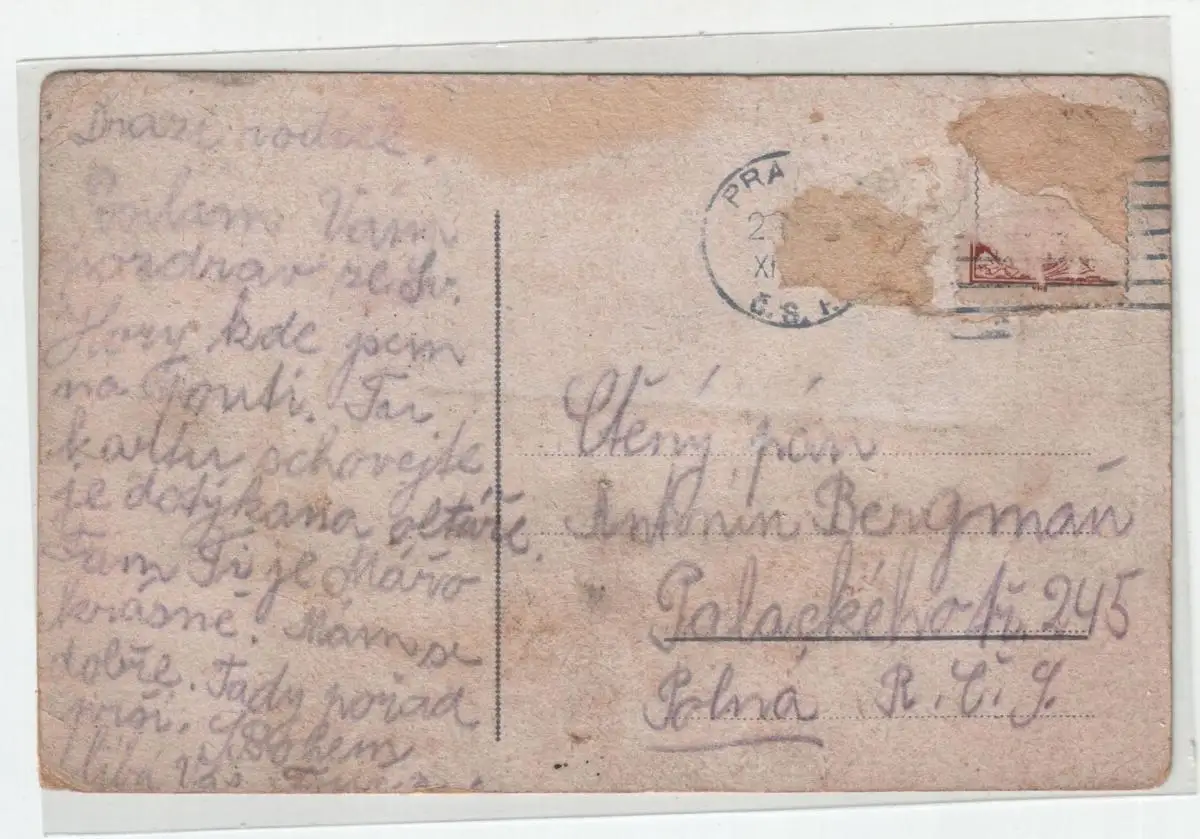 Drazí rodiče,
posílám Vám
pozdrav ze Sv.
Hory kde jsem
na pouti. Tu
kartu schovejte
je dotýkána oltáře.
Tam Ti je Mářo
krásně. Mám se
dobře. Tady pořád
prší. S Bohem
líbá Vás
PRA
2
XI
Č. S. P.
Ctěný pán
Antonín Bergman
Palackého tř. 245
Polná R. Č. S.